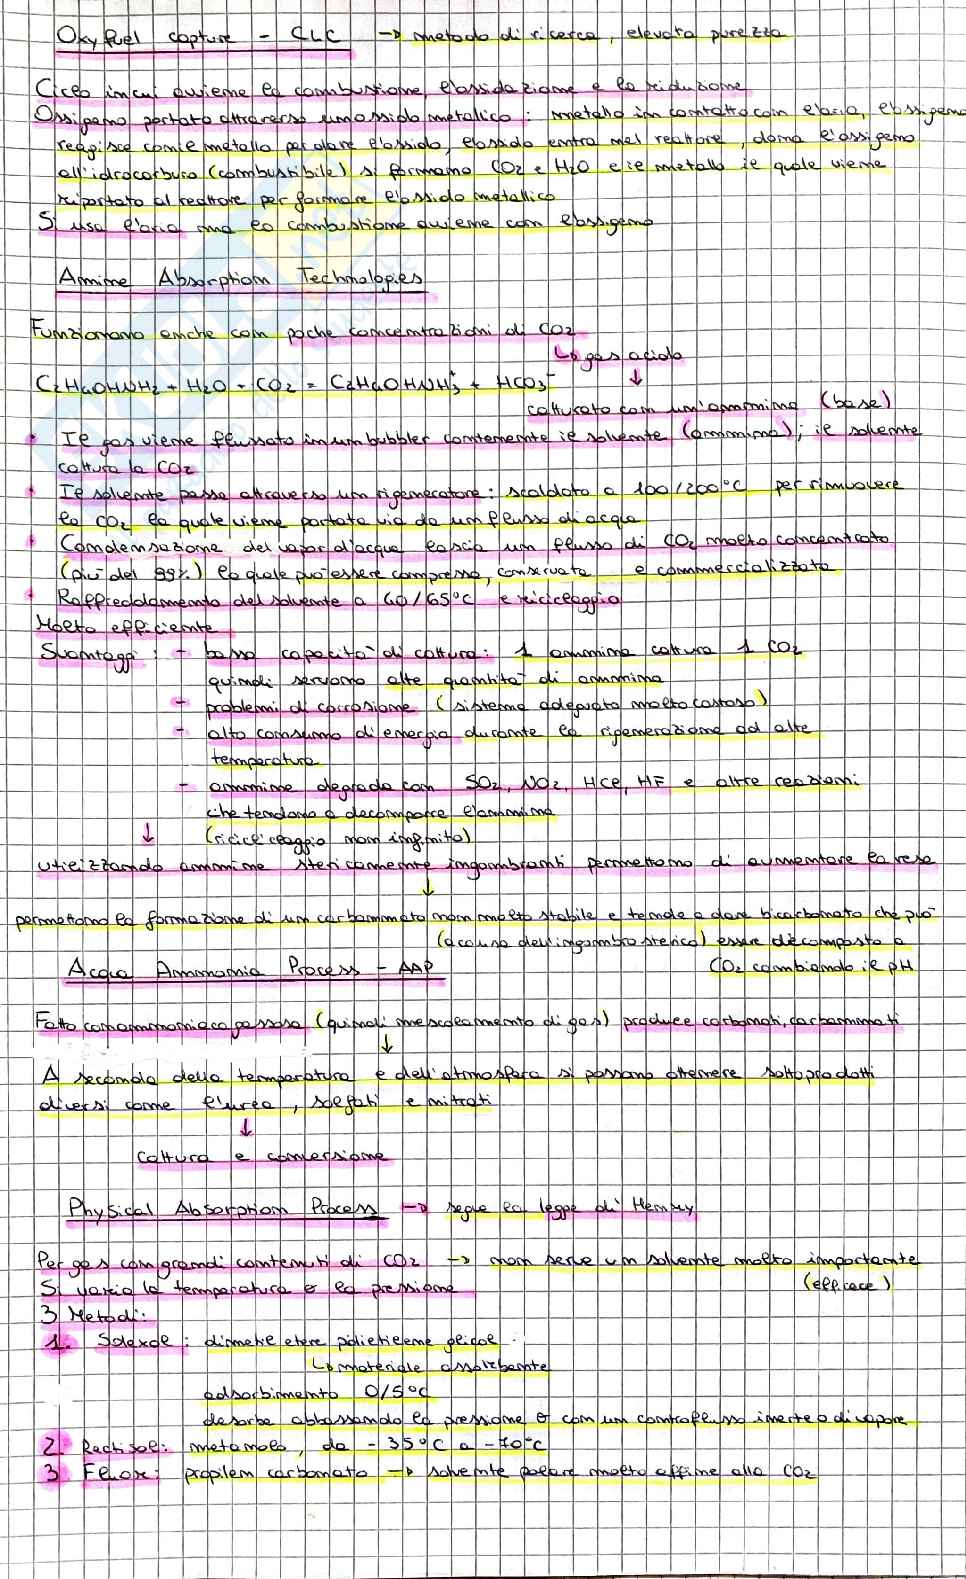 Oxyfuel capture - CLC → metodo di ricerca, elevata purezza
Ciclo in cui avviene la combustione, l'ossidazione e la riduzione
Ossigeno portato attraverso un ossido metallico: metallo in contatto con l'aria, l'ossigeno
reagisce con il metallo per dare l'ossido, l'ossido entra nel reattore, dona l'ossigeno
all'idrocarburo (combustibile) si formano CO2 e H2O e il metallo il quale viene
riportato al reattore per formare l'ossido metallico
Si usa l'aria ma la combustione avviene con l'ossigeno
Amine Absorption Technologies
Funzionano anche con poche concentrazioni di CO2
↳ gas acido
C2H4OHNH2 + H2O + CO2 = C2H4OHNH3+ + HCO3-
↓
catturato con un'ammina (base)
• Il gas viene flussato in un bubbler contenente il solvente (ammina); il solvente
cattura la CO2
• Il solvente passa attraverso un rigeneratore: scaldato a 100/200°C per rimuovere
la CO2 la quale viene portata via da un flusso di acqua
• Condensazione del vapor d'acqua lascia un flusso di CO2 molto concentrato
(più del 99%) la quale può essere compressa, conservata e commercializzata
• Raffreddamento del solvente a 40/65°C e riciclaggio
Molto efficiente
Svantaggi: - bassa capacità di cattura: 1 ammina cattura 1 CO2
quindi servono alte quantità di ammina
- problemi di corrosione (sistema adeguato molto costoso)
- alto consumo di energia durante la rigenerazione ad alte
temperatura
- ammine degrada con SO2, NO2, HCl, HF e altre reazioni
che tendono a decomporre l'ammina
↓ (riciclaggio non infinito)
utilizzando ammine stericamente ingombranti permettono di aumentare la resa
↓
permettono la formazione di un carbammato non molto stabile e tende a dare bicarbonato che può
(a causa dell'ingombro sterico) essere decomposto a
Acqua Ammonia Process - AAP
CO2 cambiando il pH
Fatto con ammoniaca gassosa (quindi mescolamento di gas) produce carbonati, carbammati
↓
A seconda della temperatura e dell'atmosfera si possono ottenere sottoprodotti
diversi come l'urea, solfati e nitrati
↓
Cattura e conversione
Physical Absorption Process → segue la legge di Henry
Per gas con grandi contenuti di CO2 → non serve un solvente molto importante
Si varia la temperatura o la pressione (efficace)
3 Metodi:
1. Solexde: dimetil etere polietilene glicole
↳ materiale assorbente
adsorbimento 0/5°C
desorbe abbassando la pressione o con un controflusso inerte o di vapore
2. Rectisol: metanolo, da -35°C a -70°C
3 Fluox: propilen carbonato → solvente polare molto affine alla CO2